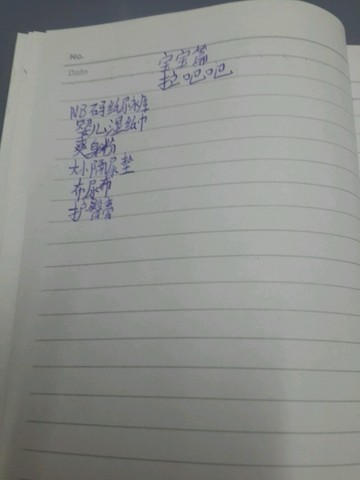 No.
Date
宝宝篇
拉吧吧
NB码纸尿裤
婴儿湿纸巾
爽身粉
大小隔尿垫
布尿布
护臀膏